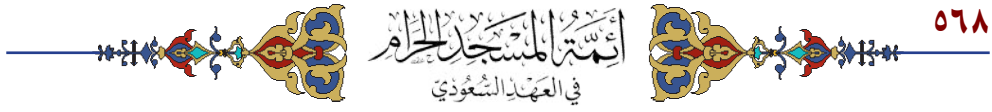 ٥٦٨
أَئِمَّةُ المَسْجِدِ الحَرَامِ
فِي العَهْدِ السُّعُودِيّ